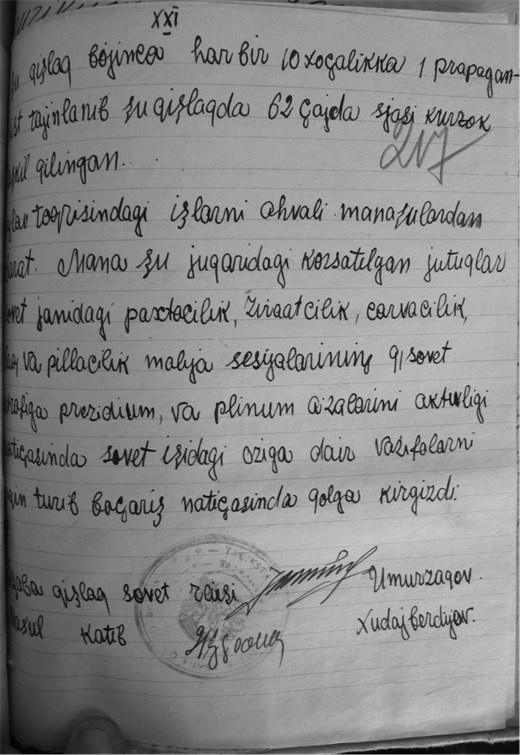 XXI
qişlaq bojinca har bir 10 xoçalikka 1 prapagan-
tajinlanib şu qişlaqda 62 çajda sjasi kurzok
qilingan.
217
toqrisindagi işlarni ahvali manaşulardan
Mana şu juqaridagi korsatilgan jutuqlar
sovet janidagi paxtacilik, ziraatcilik, carvacilik,
va pillacilik malija sesijalarining 9, sovet
prezidium, va plinum azalarini aktivligi
natiçasinda sovet işidagi oziga dair vazifalarni
turib baçariş natiçasinda qolga kirgizdi:
qişlaq sovet raisi Umurzaqov.
Katib Xudajberdijov.